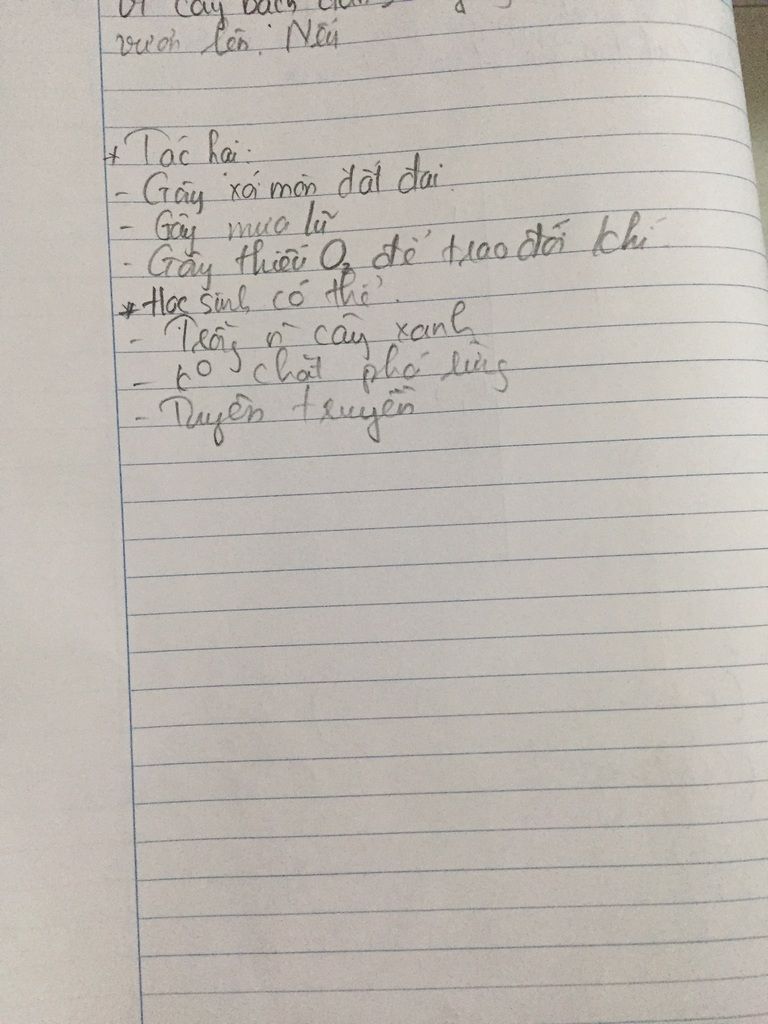 Vì cây bạch đàn
vươn lên. Nếu
* Tác hại:
- Gây xói mòn đất đai.
- Gây mưa lũ
- Gây thiếu O₂ để trao đổi khí.
* Học sinh có thể.
- Trồng n̄ cây xanh
- K⁰ chặt phá rừng
- Tuyên truyền